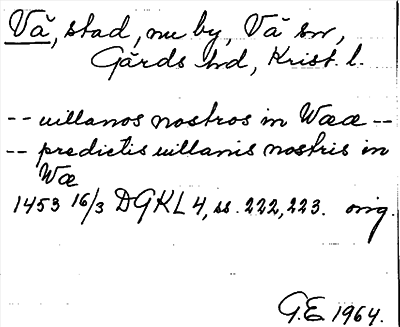 Vä, stad, nu by, Vä sn,
Gärds hd, Krist. l.
-- uillanos nostros in Wææ --
-- predictis uillanis nostris in
Wæ
1453 16/3 DGKL 4, ss. 222, 223. orig.
G.E 1964.